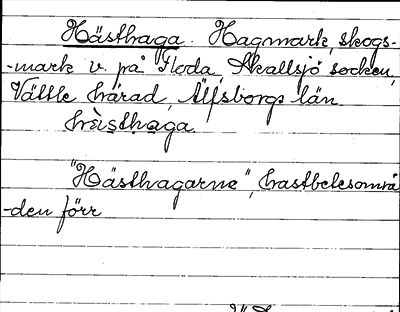 Hästhaga. Hagmark, skogs-
-mark v. på Floda, Skallsjö socken,
Vättle härad, Älfsborgs län.
hà̤sthaga.
"Hästhagarne", hastbetesområ
-den förr